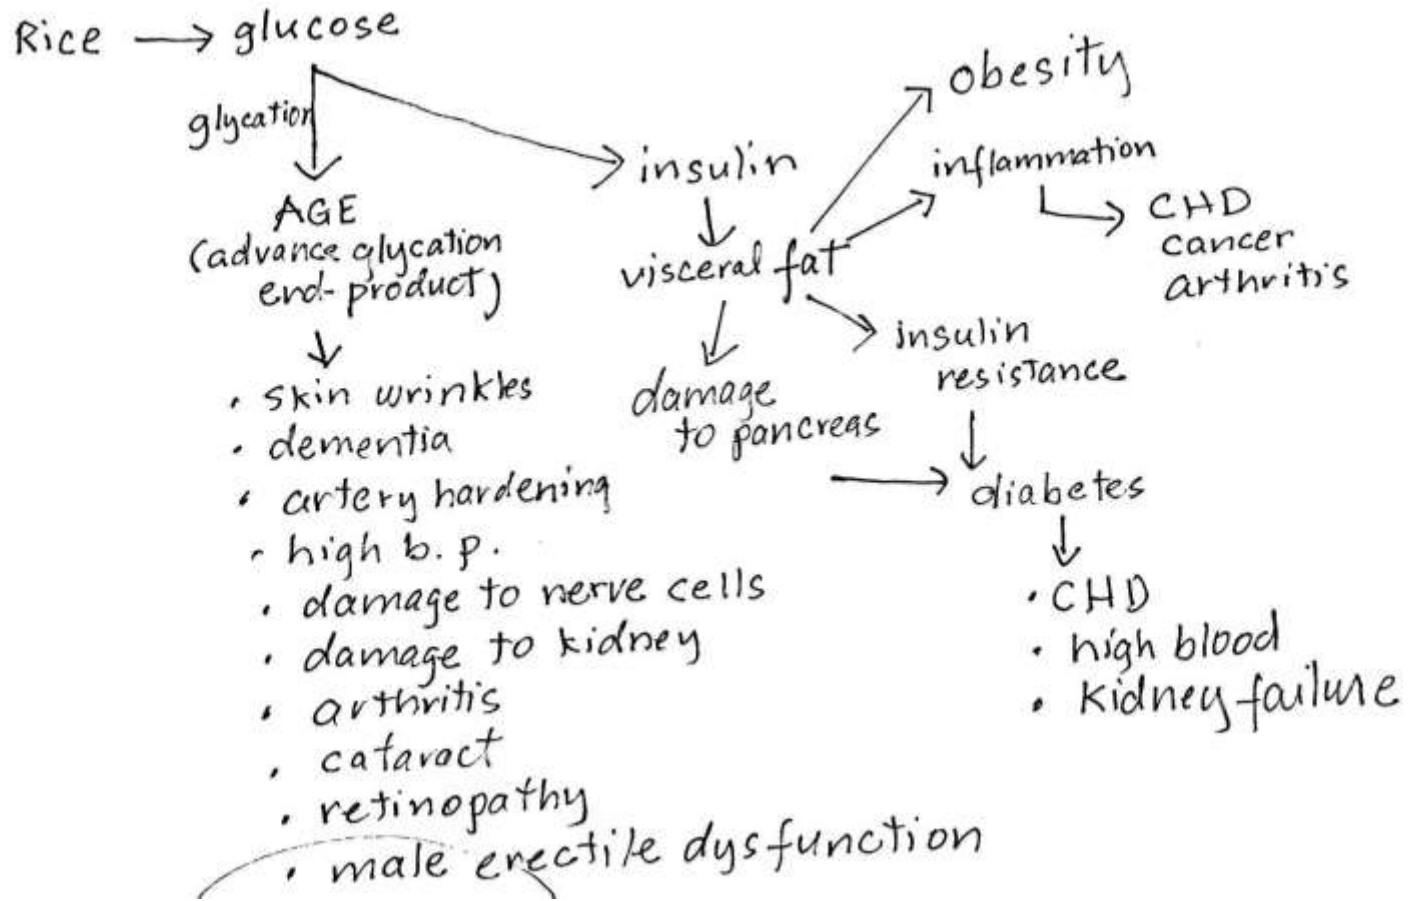 Rice → glucose
glycation
AGE
(advance glycation
end-product)
• skin wrinkles
• dementia
• artery hardening
• high b.p.
• damage to nerve cells
• damage to kidney
• arthritis
• cataract
• retinopathy
• male erectile dysfunction
insulin
visceral fat
obesity
inflammation
CHD
cancer
arthritis
insulin
resistance
damage
to pancreas
diabetes
• CHD
• high blood
• kidney failure